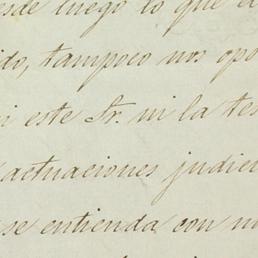 desde luego lo que a
ido, tampoco nos opo
i este Sr. ni la tes
actuaciones judici
se entienda con no